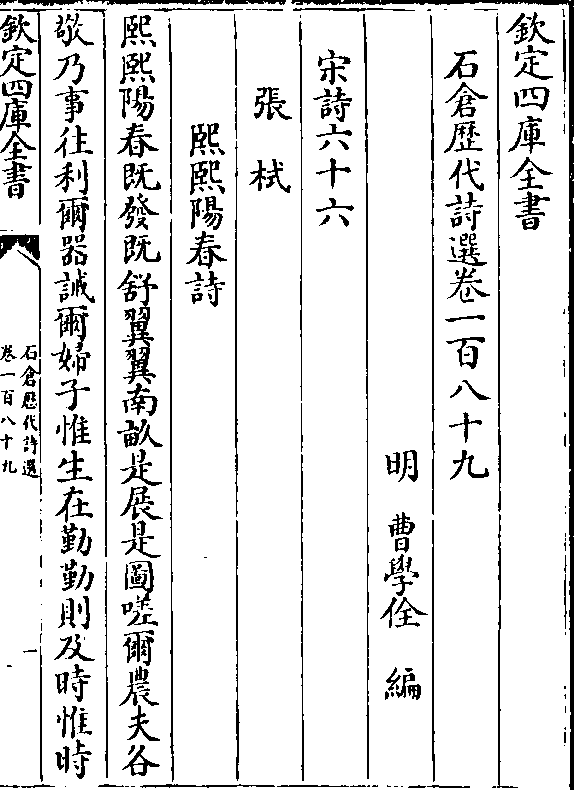 欽定四庫全書
石倉歴代詩選卷一百八十九
明 曹學佺 編
宋詩六十六
張栻
熙熙陽春詩
熙熙陽春既發既舒翼翼南畝是展是圖嗟爾農夫各
敬乃事往利爾器誡爾婦子惟生在勤勤則及時惟時
欽定四庫全書
石倉歴代詩選
卷一百八十九
一